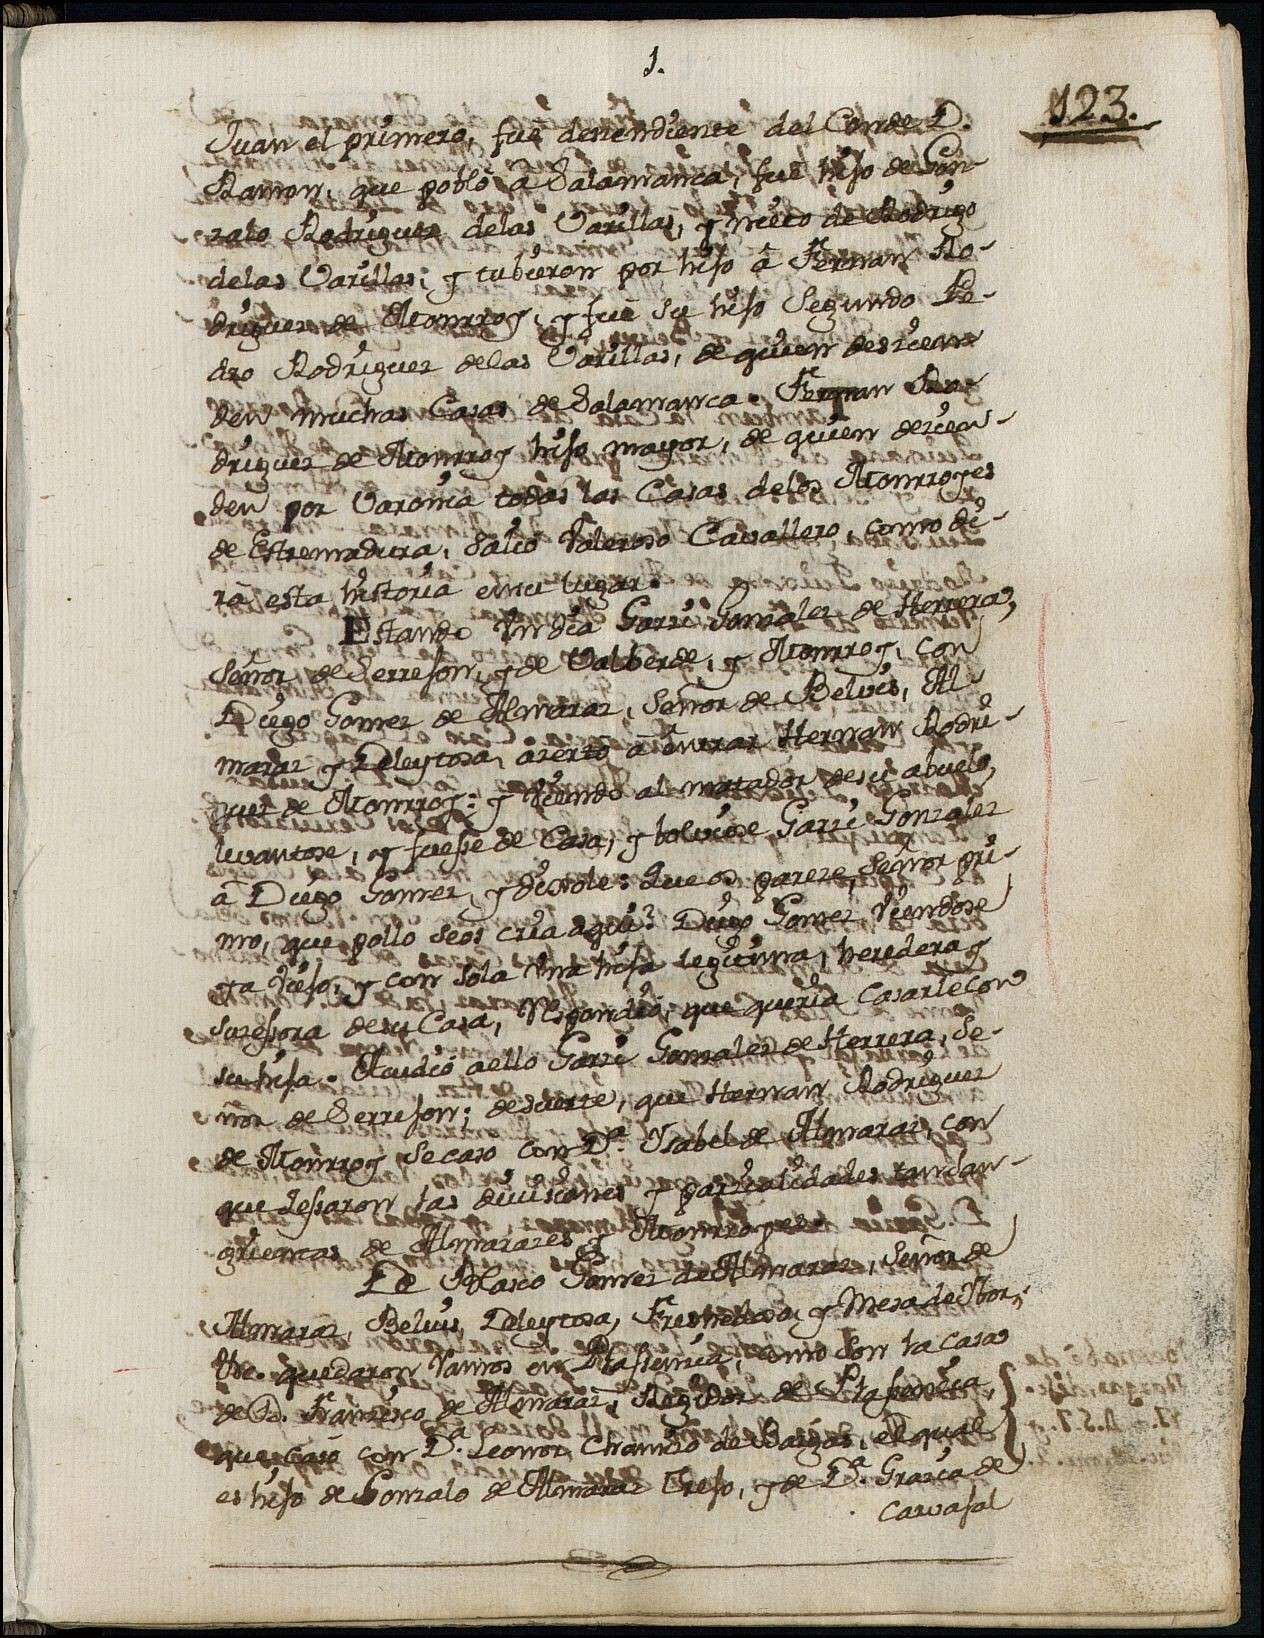 1.
123.
Juan el primero, fue decendiente del Conde D.
Ramon, que poblò a Salamanca, fue hijo de Gon-
zalo Rodriguez delas Varillas, y nieto de Rodrigo
delas Varillas; y tubieron por hijo â Fernan Ro-
driguez de Monrroy, y fue su hijo Segundo Pe-
dro Rodriguez delas Varillas, de quien descien
den muchas Casas de Salamanca. Fernan Ro-
driguez de Monrroy hijo mayor, de quien decien-
den por Varonia todas las Casas delos Monrroyes
de Estremadura, Saliò Valeroso Cavallero, como di-
rà esta historia ensu lugar.
Estando Vn dia Garzi Gonzalez de Herrera,
Señor de Serrejon, y de Valberde, y Monrroy, con
Diego Gomez de Almaraz, Señor de Belvis, Al-
maraz y Deleytosa, azertò â entrar Hernan Rodri-
guez de Monrroy: y Viendo al matador desu abuelo,
levantose, y fuesse de Casa, y bolviose Garzi Gonzalez
â Diego Gomez, y dixole: Que os pareze, Señor pri-
mo, que pollo seos cria aqui? Diego Gomez Viendose
ya Viejo, y con sola Vna hija legitima, heredera y
suzessora desu Casa, Respondiò, que queria Casarle con
su hija. Acudiò aello Garzi Gonzalez de Herrera, Se-
ñor de Serrejon; desuerte, que Hernan Rodriguez
de Monrroy Se caso con D.ª Ysabel de Almaraz, con
que zessaron las divisiones y parzialidades tan san-
grientas de Almarazes y Monrroyes.
De Blasco Gomez de Almaraz, Señor de
Almaraz, Belvis, Deleytosa, Fresnedoso, y Mesa de Ybor;
&c. quedaron Ramos en Plasenzia, como Son la casa
de D. Franzisco de Almaraz, Regidor de Plasenzia,
que casò con D.ª Leonor Chamizo de Bargas, el qual
es hijo de Gonzalo de Almaraz Trejo, y de D.ª Grazia de
Carvajal